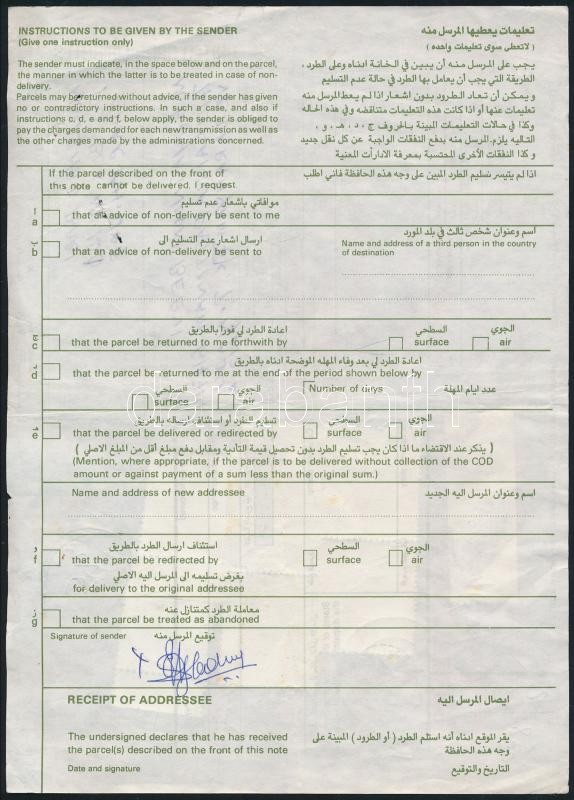 INSTRUCTIONS TO BE GIVEN BY THE SENDER
(Give one instruction only)
تعليمات يعطيها المرسل منه
( لا تعطى سوى تعليمات واحده )
The sender must indicate, in the space below and on the parcel,
the manner in which the latter is to be treated in case of non-
delivery.
Parcels may be returned without advice, if the sender has given
no or contradictory instructions. In such a case, and also if
instructions c, d, e and f, below apply, the sender is obliged to
pay the charges demanded for each new transmission as well as
the other charges made by the administrations concerned.
يجب على المرسل منه أن يبين في الخانة ادناه وعلى الطرد ،
الطريقة التي يجب أن يعامل بها الطرد في حالة عدم التسليم
ويمكن أن تعاد الطرود بدون اشعار اذا لم يعط المرسل منه
تعليمات عنها أو اذا كانت هذه التعليمات متناقضه وفي هذه الحاله
وكذا في حالات التعليمات المبينة بالحروف ج ، د ، هـ ، و ،
التاليه يلزم المرسل منه بدفع النفقات الواجبة عن كل نقل جديد
وكذا النفقات الأخرى المحتسبة بمعرفة الادارات المعنية
If the parcel described on the front of
this note cannot be delivered, I request.
اذا لم يتيسر تسليم الطرد المبين على وجه هذه الحافظة فاني اطلب
موافاتي باشعار عدم تسليم
أ
a
that an advice of non-delivery be sent to me
ارسال اشعار عدم التسليم الى
ب
b
that an advice of non-delivery be sent to
اسم وعنوان شخص ثالث في بلد المورد
Name and address of a third person in the country
of destination
اعادة الطرد لي فورا بالطريق
السطحي
الجوي
ج
c
that the parcel be returned to me forthwith by
surface
air
اعادة الطرد لي بعد وفاء المهله الموضحة ادناه بالطريق
د
d
that the parcel be returned to me at the end of the period shown below by
السطحي
surface
الجوي
air
Number of days
عدد ايام المهلة
تسليم الطرد أو استئناف ارساله بالطريق
السطحي
الجوي
هـ
e
that the parcel be delivered or redirected by
surface
air
( يذكر عند الاقتضاء ما اذا كان يجب تسليم الطرد بدون تحصيل قيمة التأدية ومقابل دفع مبلغ أقل من المبلغ الاصلي )
(Mention, where appropriate, if the parcel is to be delivered without collection of the COD
amount or against payment of a sum less than the original sum.)
Name and address of new addressee
اسم وعنوان المرسل اليه الجديد
استئناف ارسال الطرد بالطريق
السطحي
الجوي
و
f
that the parcel be redirected by
surface
air
بغرض تسليمه الى المرسل اليه الاصلي
for delivery to the original addressee
معاملة الطرد كمتنازل عنه
ز
g
that the parcel be treated as abandoned
Signature of sender
توقيع المرسل منه
RECEIPT OF ADDRESSEE
ايصال المرسل اليه
The undersigned declares that he has received
the parcel(s) described on the front of this note
يقر الموقع ادناه أنه استلم الطرد ( أو الطرود ) المبينة على
وجه هذه الحافظة
Date and signature
التاريخ والتوقيع
darabanth